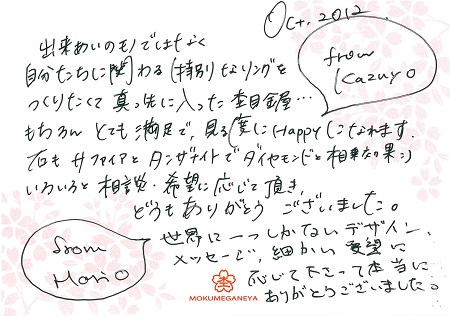 Oct. 2012
from
Kazuyo
出来あいのモノではなく
自分たちに関わる特別なリングを
つくりたくて真っ先に入った杢目金屋…
もちろんとても満足で、見る度にHappyになれます。
石もサファイアとタンザナイトでダイヤモンドと相乗効果:)
いろいろと相談・希望に応じて頂き、
どうもありがとうございました。
from
Morio
世界に一つしかないデザイン、
メッセージ、細かい要望に
応じて下さって本当に
ありがとうございました。
MOKUMEGANEYA